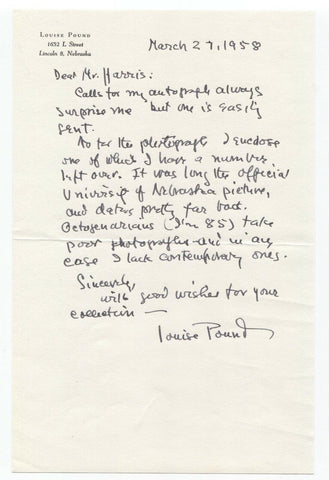 LOUISE POUND
1632 L Street
Lincoln 8, Nebraska
March 27, 1958
Dear Mr. Harris:
Calls for my autograph always
surprise me but one is easily
sent.
As for the photograph I enclose
one of which I have a number
left over. It was long the official
University of Nebraska picture,
and dates pretty far back.
Octogenarians (I'm 85) take
poor photographs and in any
case I lack contemporary ones.
Sincerely,
with good wishes for your
collection —
Louise Pound